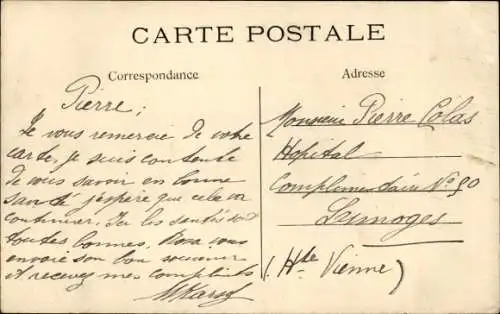 CARTE POSTALE
Correspondance
Adresse
Pierre;
Je vous remercie de votre
carte, je suis contente
de vous savoir en bonne
santé j'espère que cela va
continuer. Ici les santés sont
toutes bonnes. Rosa vous
envoie son bon souvenir
et recevez mes compliments
Monsieur Pierre Colas
Hôpital
Complémentaire N° 90
Limoges
(Hte Vienne)